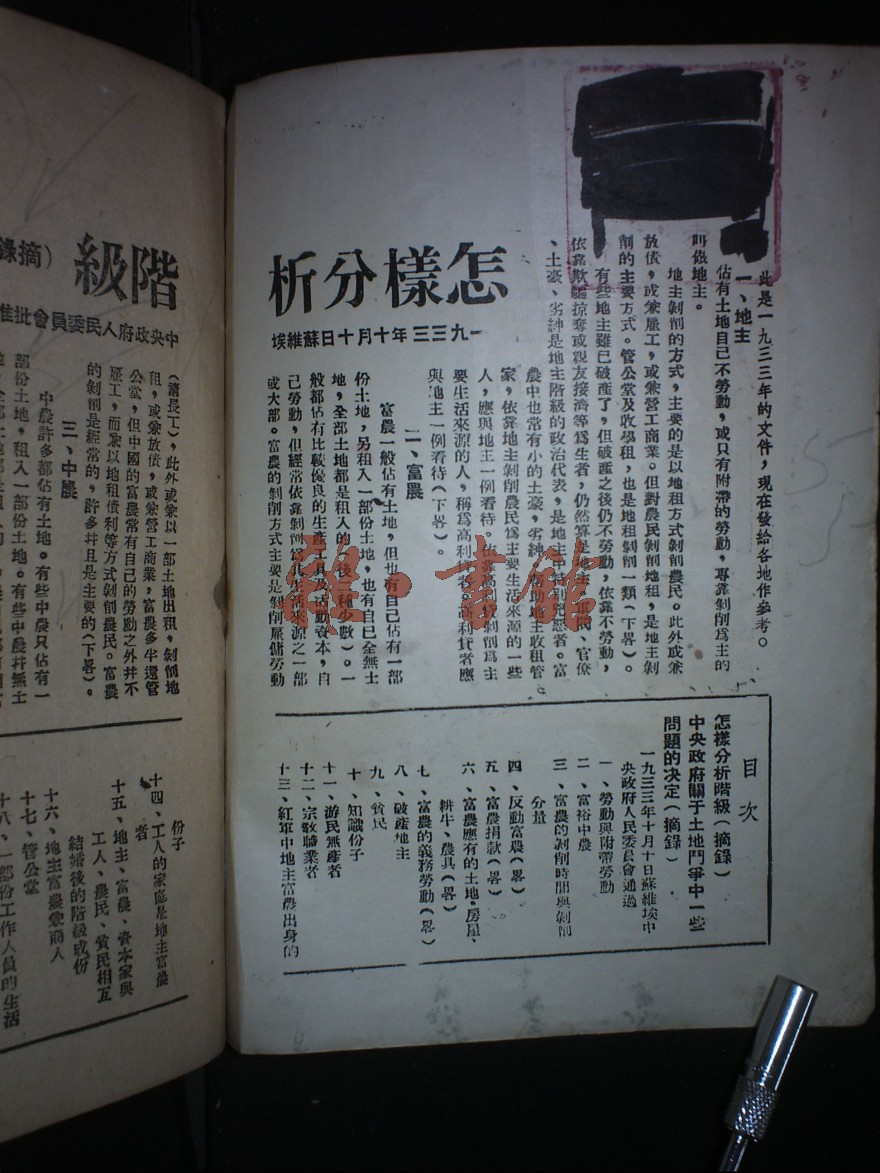 怎樣分析
一九三三年十月十日蘇維埃
此是一九三三年的文件，現在發給各地作參考。
一、地主
佔有土地自己不勞動，或只有附帶的勞動，專靠剝削為主的
叫做地主。
地主剝削的方式，主要的是以地租方式剝削農民。此外或兼
放債，或兼雇工，或兼營工商業。但對農民剝削地租，是地主剝
削的主要方式。管公堂及收學租，也是地租剝削一類（下畧）。
有些地主雖已破產了，但破產之後仍不勞動，依靠不勞動，
依靠欺騙掠奪或親友接濟等為生者，仍然算是地主。軍閥、官僚
、土豪、劣紳是地主階級的政治代表，是地主中特別兇惡者。富
農中也常有小的土豪，劣紳。幫助地主收租管
家，依靠地主剝削農民為主要生活來源的一些
人，應與地主一例看待。依靠高利貸剝削為主
要生活來源的人，稱為高利貸者。高利貸者應
與地主一例看待（下畧）。
二、富農
富農一般佔有土地，但也有自己佔有一部
份土地，另租入一部份土地，也有自己全無土
地，全部土地都是租入的（後二種少數）。一
般都佔有比較優良的生產工具及活動資本，自
己勞動，但經常依靠剝削為其生活來源之一部
或大部。富農的剝削方式主要是剝削雇傭勞動
目次
怎樣分析階級（摘錄）
中央政府關于土地鬥爭中一些
問題的決定（摘錄）
一九三三年十月十日蘇維埃中
央政府人民委員會通過
一、勞動與附帶勞動
二、富裕中農
三、富農的剝削時間與剝削
分量
四、反動富農（畧）
五、富農捐款（畧）
六、富農應有的土地・房屋、
耕牛、農具（畧）
七、富農的義務勞動（畧）
八、破產地主
九、貧民
十、知識份子
十一、游民無產者
十二、宗敎職業者
十三、紅軍中地主富農出身的
階級（摘錄
中央政府人民委員會批准
（請長工），此外或兼以一部土地出租，剝削地
租，或兼放債，或兼營工商業，富農多半還管
公堂，但中國的富農常有自己的勞動之外并不
雇工，而兼以地租債利等方式剝削農民。富農
的剝削是經常的，許多幷且是主要的（下畧）。
三、中農
中農許多都佔有土地。有些中農只佔有一
部份土地，租入一部份土地。有些中農并無土
份子
十四、工人的家庭是地主富農
者
十五、地主、富農、資本家與
工人、農民、貧民相互
結婚後的階級成份
十六、地主富農兼商人
十七、管公堂
十八、一部份工作人員的生活